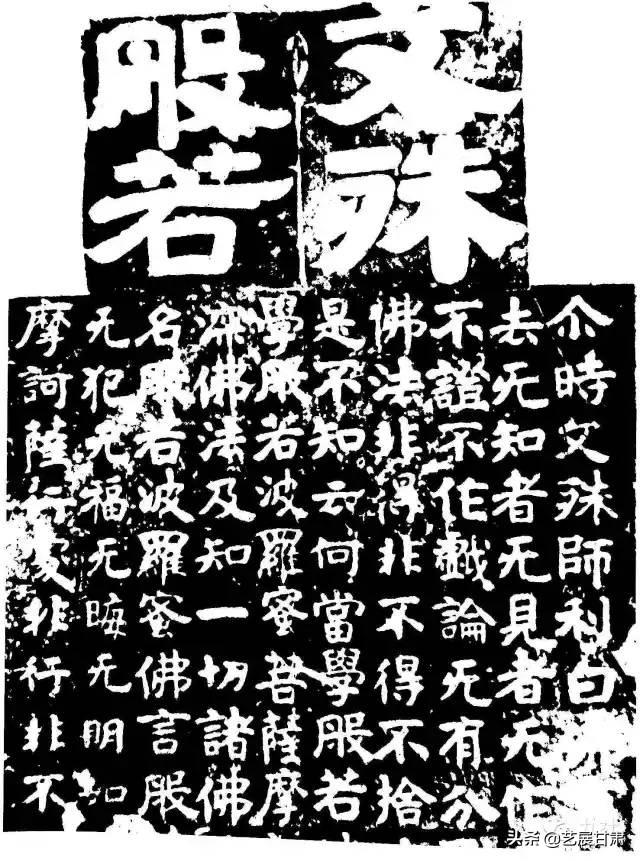 文殊
般若
尒時文殊師利白
去无知者无見者无作
不證不作戲論无有分
佛法非得非不得不捨
是不知云何當學般若
學般若波羅蜜菩薩摩
深佛法及知一切諸佛
名般若波羅蜜佛言般
无犯无福无晦无明如
摩訶薩行處非行非不
头条 @艺展甘肃